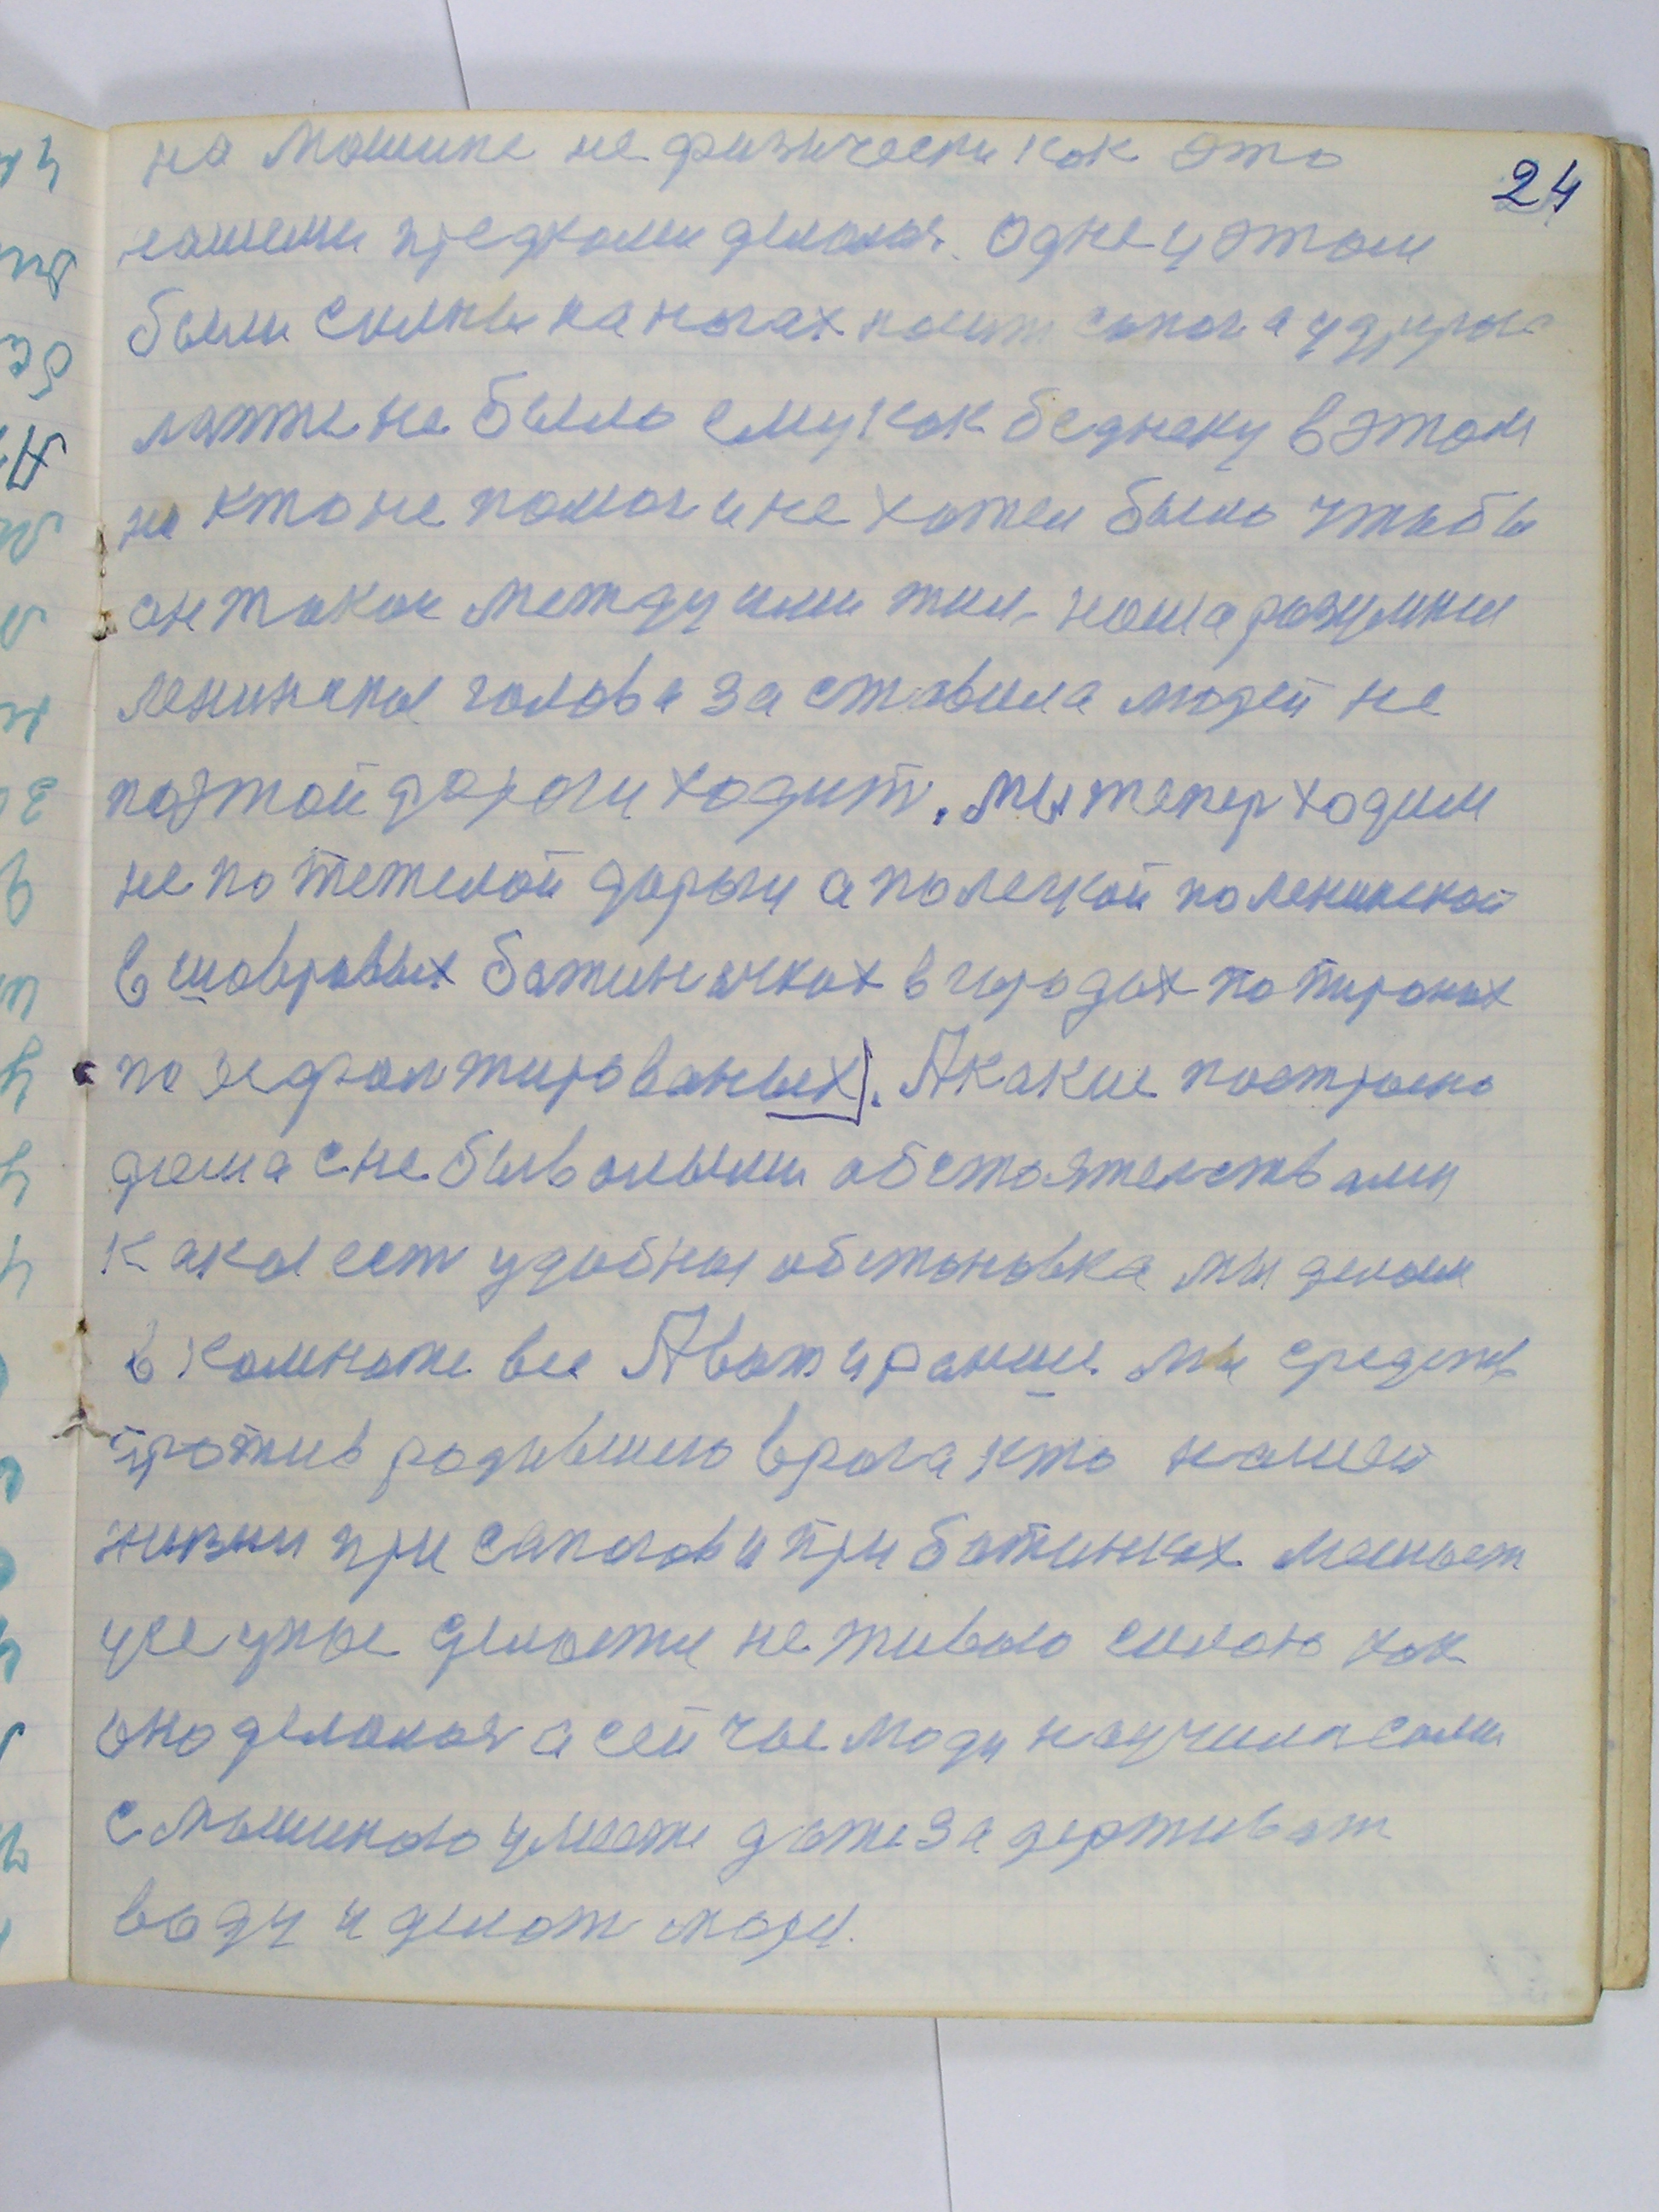 24
на машине не физически как это
нашеми предками делалося. Одне у этом
были силны на ногах носит сапога у другога
лапте не было ему как беднеку в этом
не кто не помог и не хотел было чтобы
он таков между ими жил. наша разумныя
ленинския голова заставила людей не
поэтой дароги ходит. Мы тепер ходим
не по тежелой дароги а полегкой по ленинской
в шавровых батиночках в городах по тиранах
по асфалтированых]. А какие построено
дома с не бывалыми обстоятелствами
Какая ест удобныя обстановка мы делаем
в комноте все А вот и раньше мы средств
против родившего врага кто нашей
жизни при сапогов и при ботинках мешает
усе упое делаете не живою силою как
оно делалося а сейчас люди научилися сами
с машиною умеете даже задерживат
воду и делат моря.